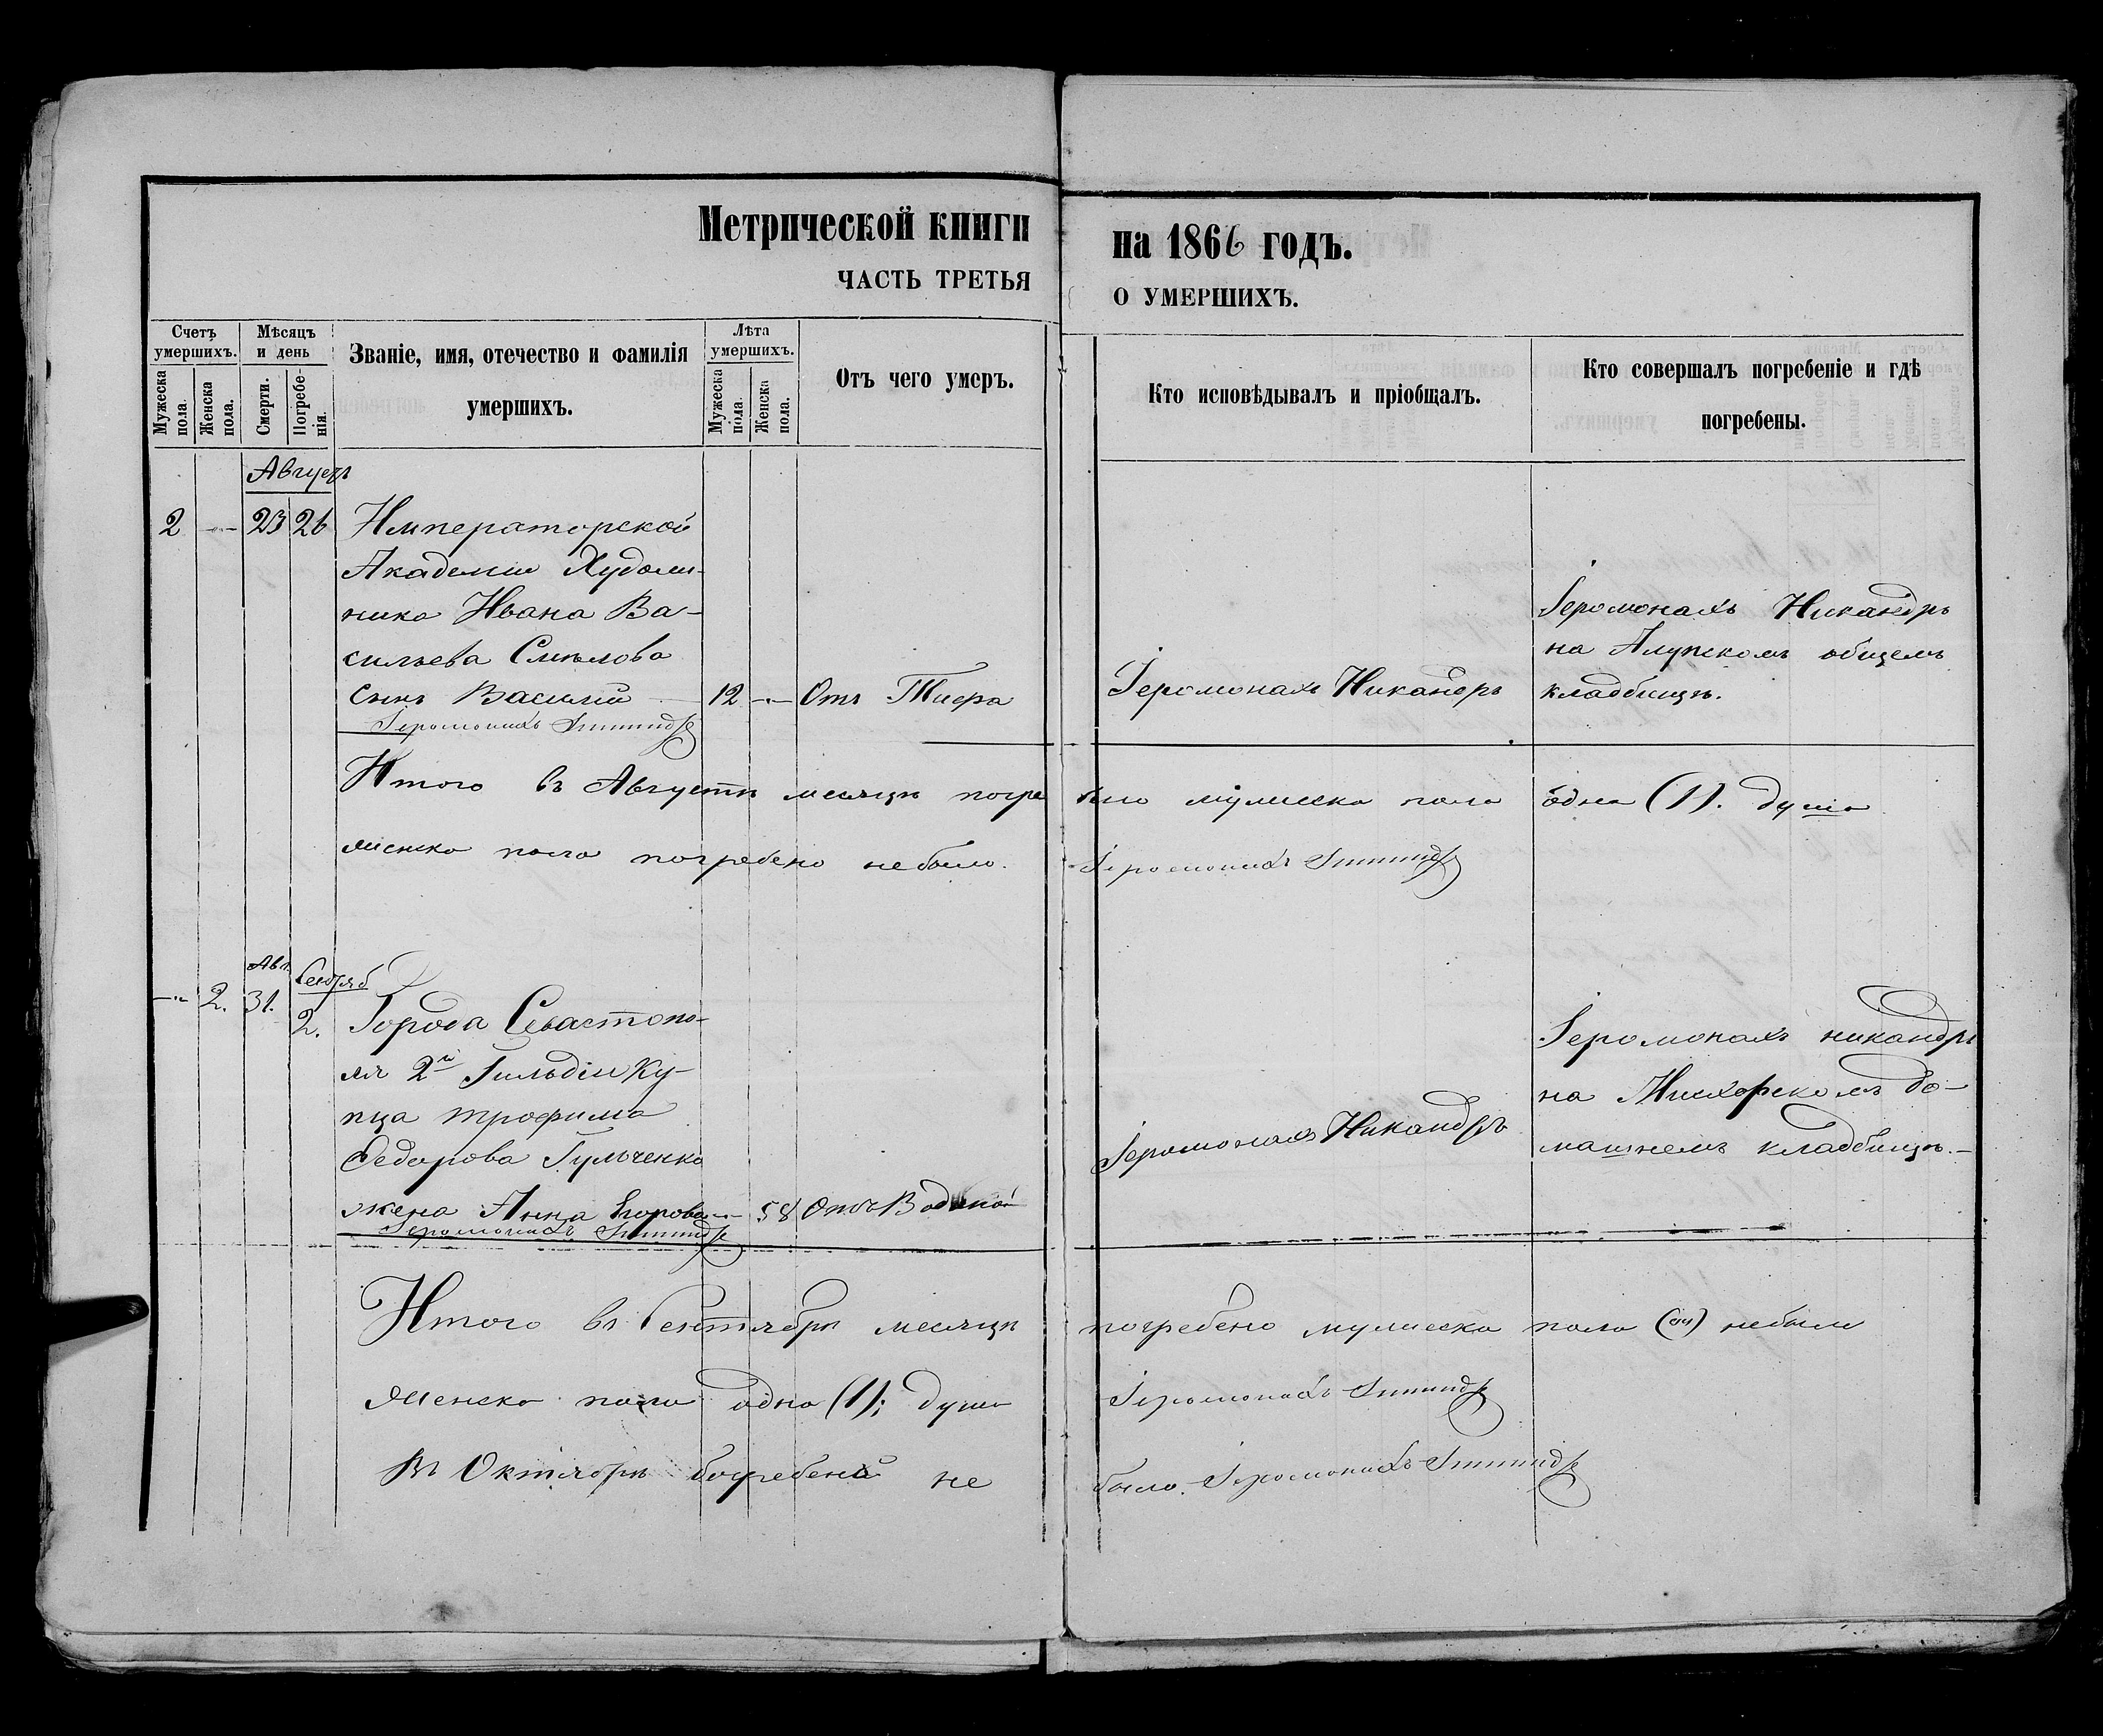 Метрической книги
на 1866 годъ.
ЧАСТЬ ТРЕТЬЯ
О УМЕРШИХЪ.
Счетъ умершихъ.
Мужеска пола.
Женска пола.
Мѣсяцъ и день
Смерти.
Погребенія.
Званіе, имя, отечество и фамилія
умершихъ.
Лѣта умершихъ.
Мужеска пола.
Женска пола.
Отъ чего умеръ.
Кто исповѣдывалъ и пріобщалъ.
Кто совершалъ погребеніе и гдѣ
погребены.
Августъ
2 — 23 26 Императорской
Академіи Художника Ивана Васильева
сынъ Василий — 12 — Отъ Тифа
Іеромонахъ Никандръ
Іеромонахъ Никандръ
на Алупскомъ общемъ
кладбищѣ.
Іеромонахъ
Итого въ Августѣ месяцѣ погребено мужеска пола одна (1). душа
женска пола погребено небыло. Іеромонахъ
Авг. Сентяб
— 2. 31. 2. Города Севастополя 2й Гильдіи Купца Трофима
Федорова Гульченко
жена Анна Егорова — 58 Отъ Водяной
Іеромонахъ Никандръ
Іеромонахъ никандръ
на Мисхорскомъ домашнемъ кладбищѣ. —
Іеромонахъ
Итого въ Сентябрѣ месяцѣ погребено мужеска пола небыло
женска пола одна (1); душа Іеромонахъ
Въ Октябрѣ погребеній не было. Іеромонахъ